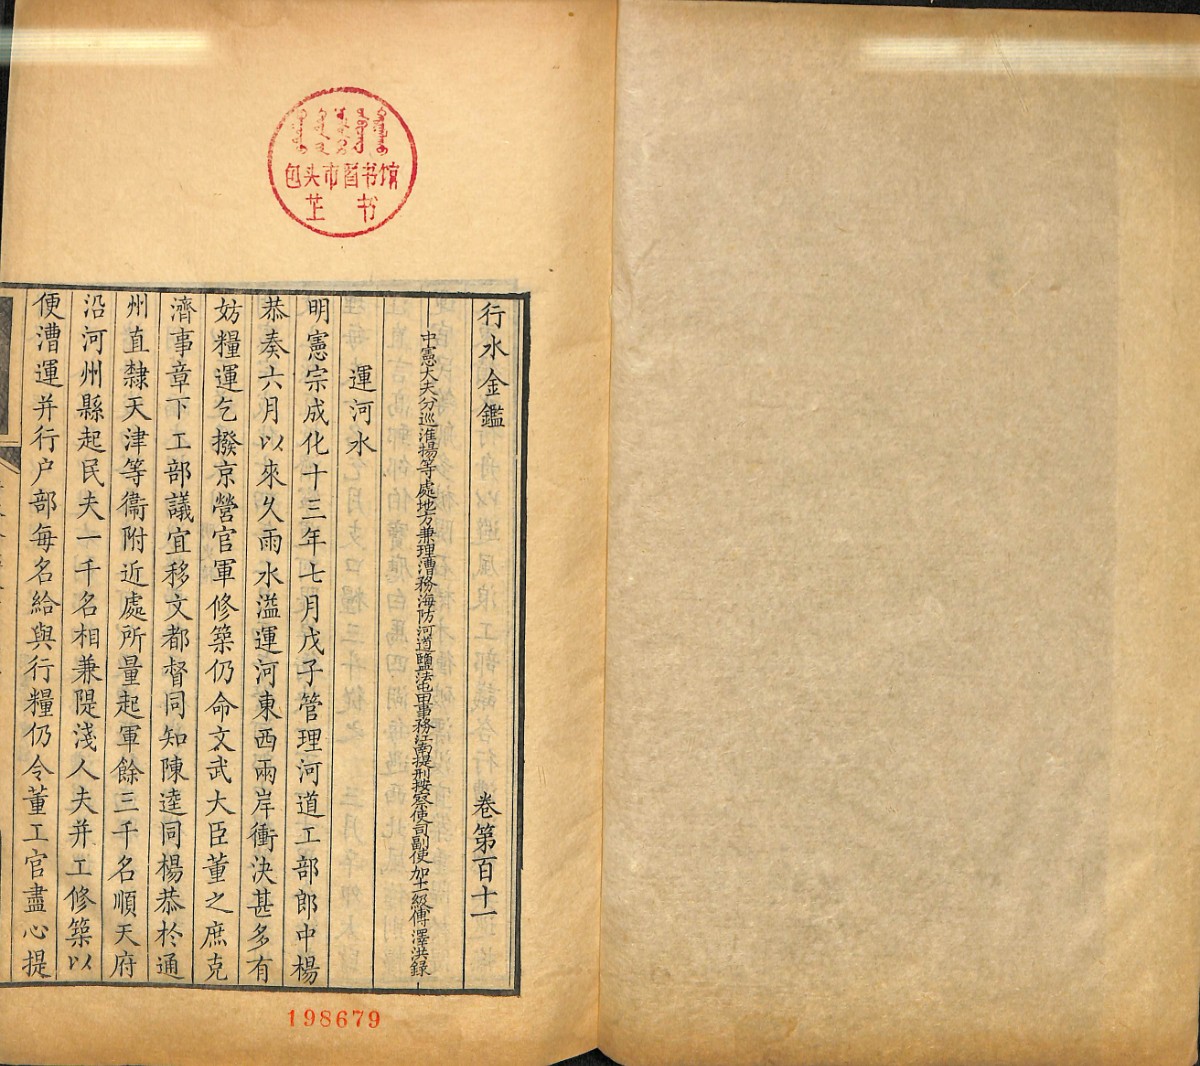 包头市图书馆
芷 书
行水金鑑 卷第百十一
中憲大夫分巡淮揚等處地方兼理漕務海防河道鹽法屯田事務江南提刑按察使司副使加十一級傅澤洪録
運河水
明憲宗成化十三年七月戊子管理河道工部郎中楊
恭奏六月以來久雨水溢運河東西兩岸衝決甚多有
妨糧運乞撥京營官軍修築仍命文武大臣董之庶克
濟事章下工部議宜移文都督同知陳逵同楊恭於通
州直隸天津等衞附近處所量起軍餘三千名順天府
沿河州縣起民夫一千名相兼隄淺人夫并工修築以
便漕運并行户部每名給與行糧仍令董工官盡心提
198679